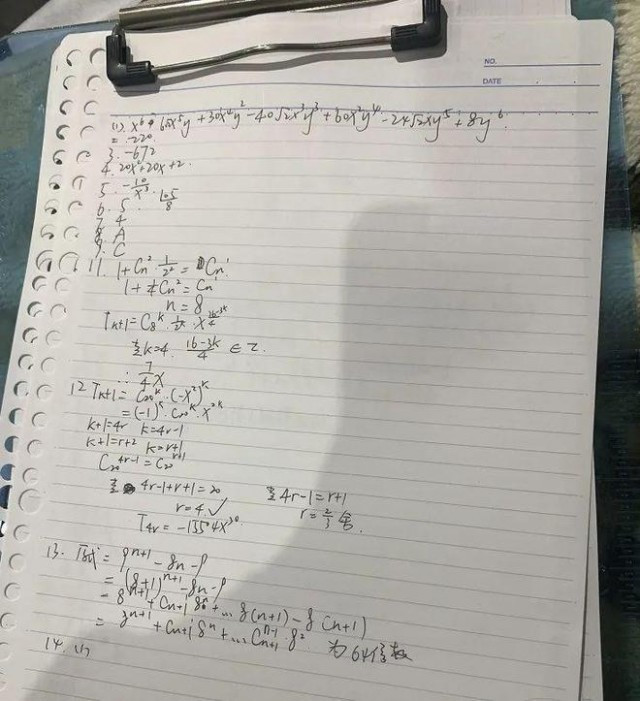 NO.
DATE
(1). x⁶ 6√2x⁵y + 30x⁴y² - 40√2x³y³ + 60x²y⁴ - 24√2xy⁵ + 8y⁶.
= -220
3. -672
4. 20x² + 20x + 2.
5. -10/x³ .
6. 5 . 105/8
7. 4
8. A
9. C
11. 1 + Cn² · 1/2² = Cn¹
1 + ¼Cn² = Cn¹
n = 8
Tk+1 = C8ᵏ · 1/2ᵏ · x^(16-3k)/4
当k=4. (16-3k)/4 ∈ Z.
∴ 7/4 x
12 Tk+1 = C20ᵏ · (-x²)ᵏ
= (-1)ᵏ · C20ᵏ · x²ᵏ
k+1=4r k=4r-1
k+1=r+2 k=r+1
C20^4r-1 = C20^r+1
当 4r-1+r+1=20 当4r-1=r+1
r=4 ✓ r=2/3 舍.
T4r = -15504x³⁰
13. 原式 = 9ⁿ⁺¹ - 8n - 9
= (8+1)ⁿ⁺¹ - 8n - 9
= 8ⁿ⁺¹ + Cn+1¹ 8ⁿ + ... 8(n+1) - 8(n+1)
= 8ⁿ⁺¹ + Cn+1¹ 8ⁿ + ... Cn+1ⁿ⁻¹ · 8² 为64倍数
14. (1)